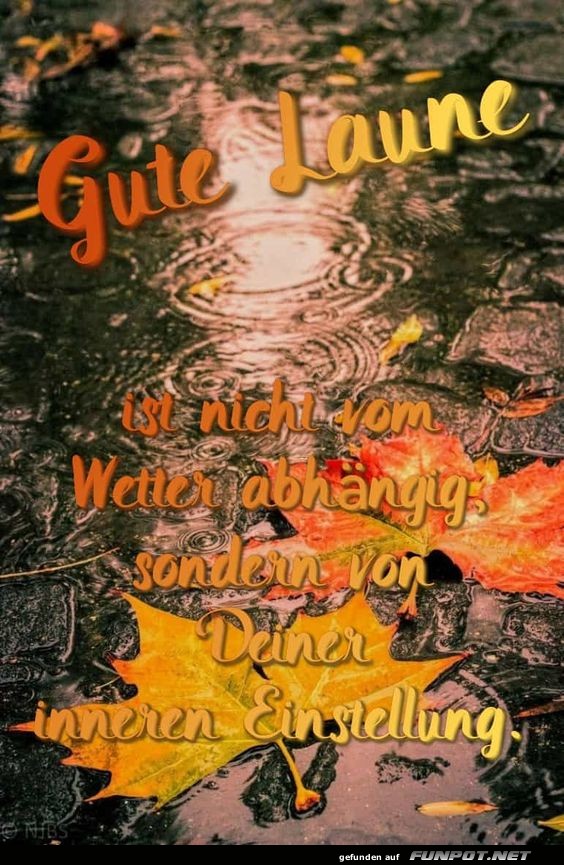 Gute Laune
ist nicht vom
Wetter abhängig,
sondern von
Deiner
inneren Einstellung.
© NJBS
gefunden auf FUNPOT.NET